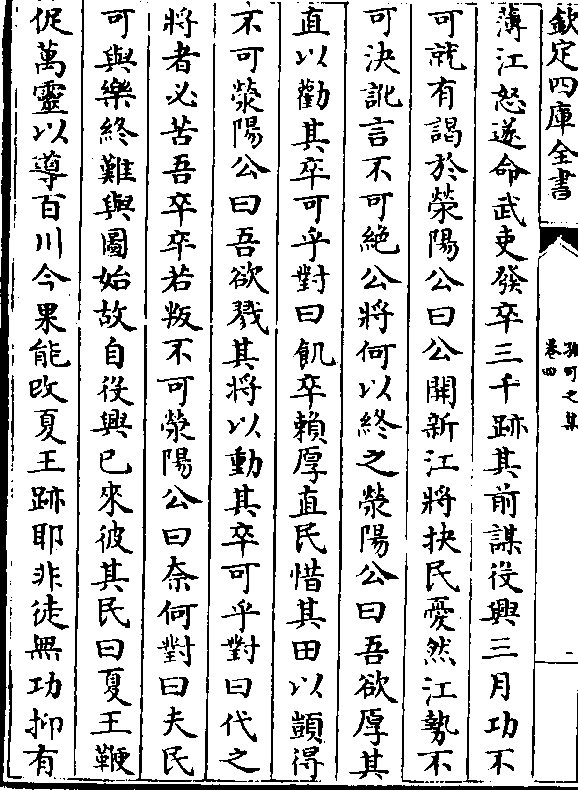 欽定四庫全書
孫可之集
卷四
薄江怒遂命武吏發卒三千跡其前謀役興三月功不
可就有謁於滎陽公曰公開新江將抉民憂然江勢不
可決訛言不可絶公將何以終之滎陽公曰吾欲厚其
直以勸其卒可乎對曰飢卒賴厚直民惜其田以顗得
不可滎陽公曰吾欲戮其將以動其卒可乎對曰代之
將者必苦吾卒卒若叛不可滎陽公曰奈何對曰夫民
可與樂終難與圖始故自役興已來彼其民曰夏王鞭
促萬靈以導百川今果能改夏王跡耶非徒無功抑有